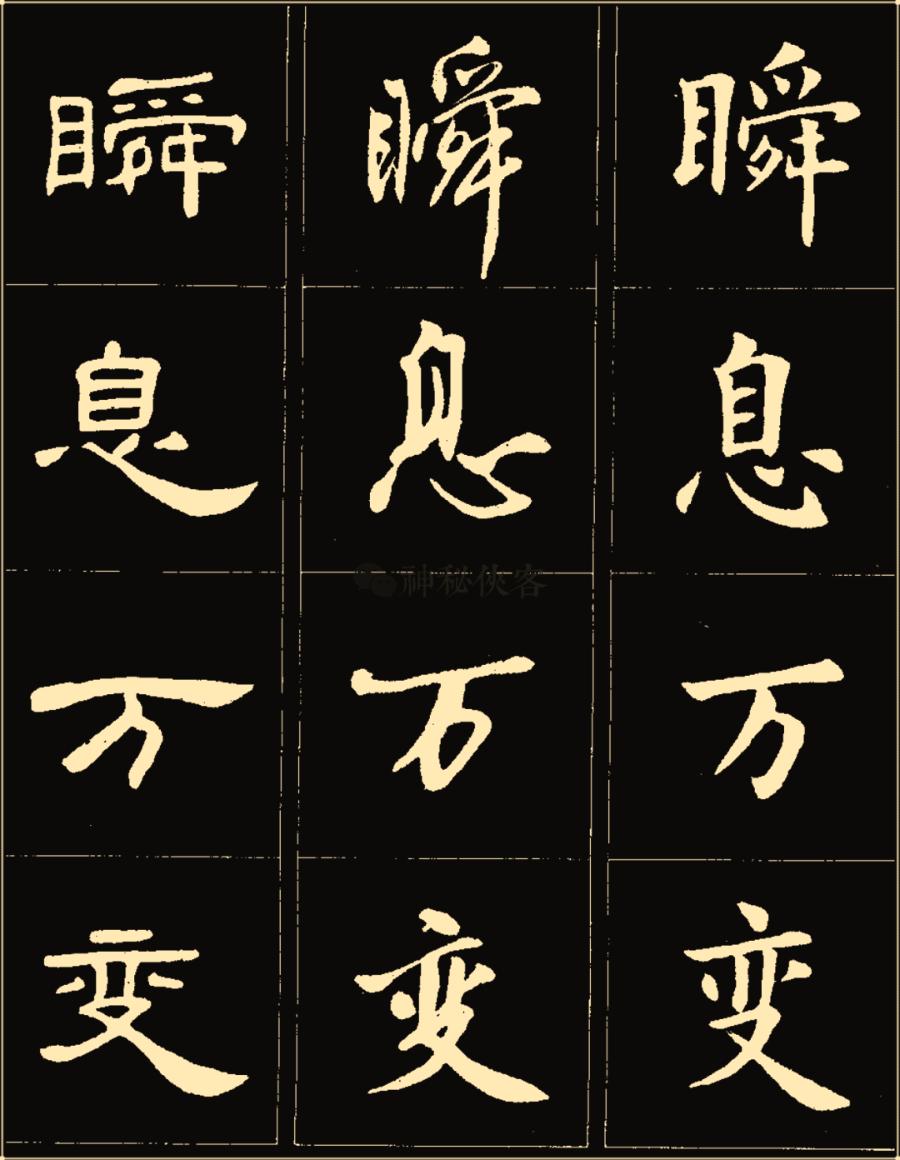 瞬 瞬 瞬
息 息 息
神秘侠客
万 万 万
变 变 变